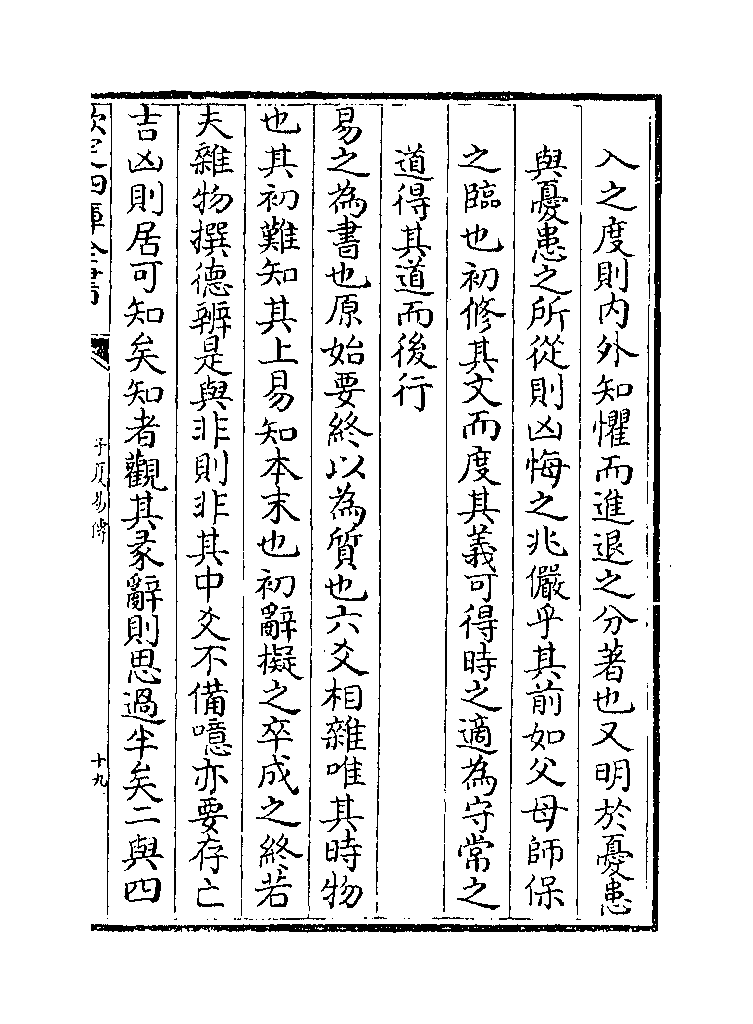 入之度則内外知懼而進退之分著也又明於憂患
與憂患之所從則凶悔之兆儼乎其前如父母師保
之臨也初修其文而度其義可得時之適為守常之
道得其道而後行
易之為書也原始要終以為質也六爻相雜唯其時物
也其初難知其上易知本末也初辭擬之卒成之終若
夫雜物撰德辨是與非則非其中爻不備噫亦要存亡
吉凶則居可知矣知者觀其彖辭則思過半矣二與四
欽定四庫全書
子夏易傳
十九